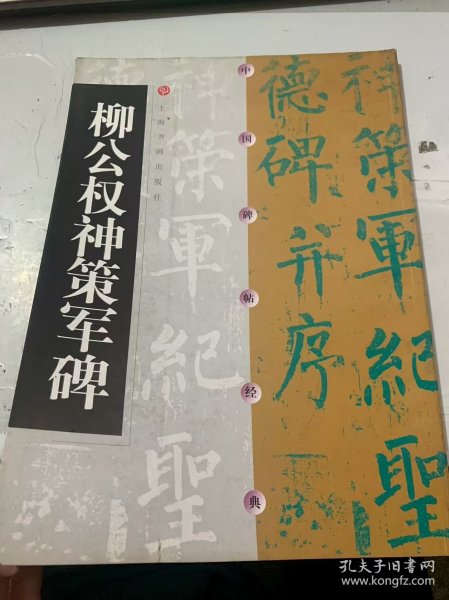 柳公权神策军碑
上海书画出版社
中国碑帖经典
神策軍紀聖
德碑并序
神策軍紀聖
德
孔夫子旧书网
www.kongfz.com